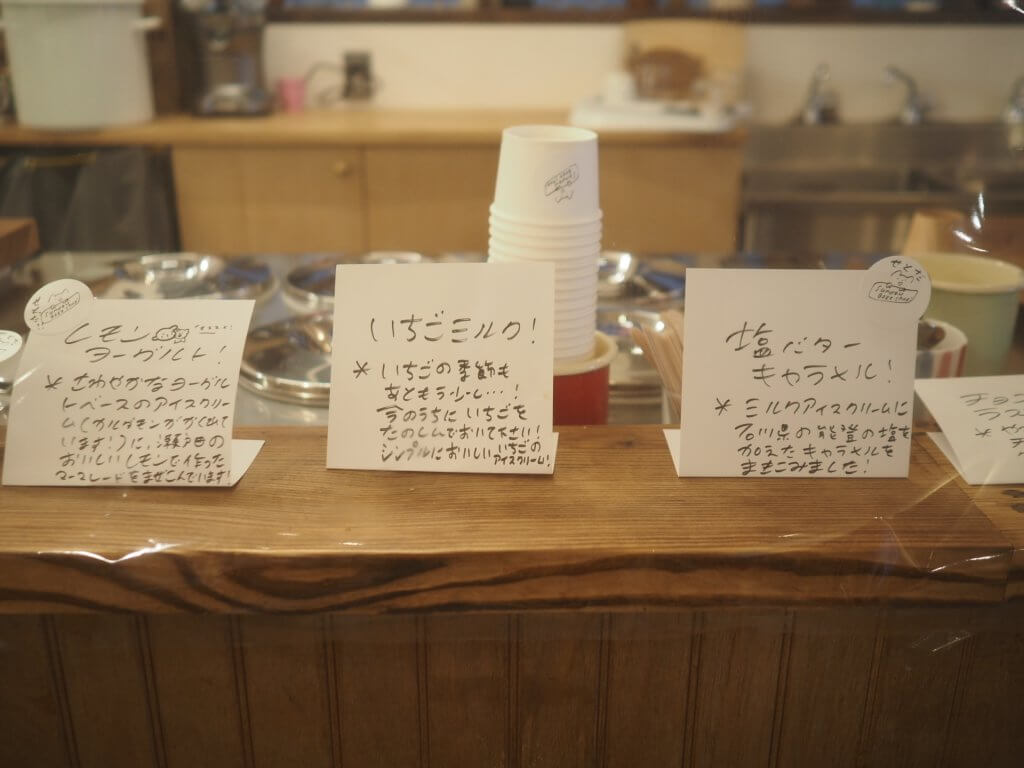 レモン
ヨーグルト!
* さわやかなヨーグル
トベースのアイスクリー
ム(カルダモンがかくれて
います!)に、瀬戸田の
おいしいレモンで作った
マーマレードをまぜこんでいます!
いちごミルク!
* いちごの季節も
あともう少し…!
今のうちにいちごを
たのしんでおいて下さい!
シンプルにおいしいいちごの
アイスクリーム!
塩バター
キャラメル!
* ミルクアイスクリームに
石川県の能登の塩を
加えたキャラメルを
まきこみました!